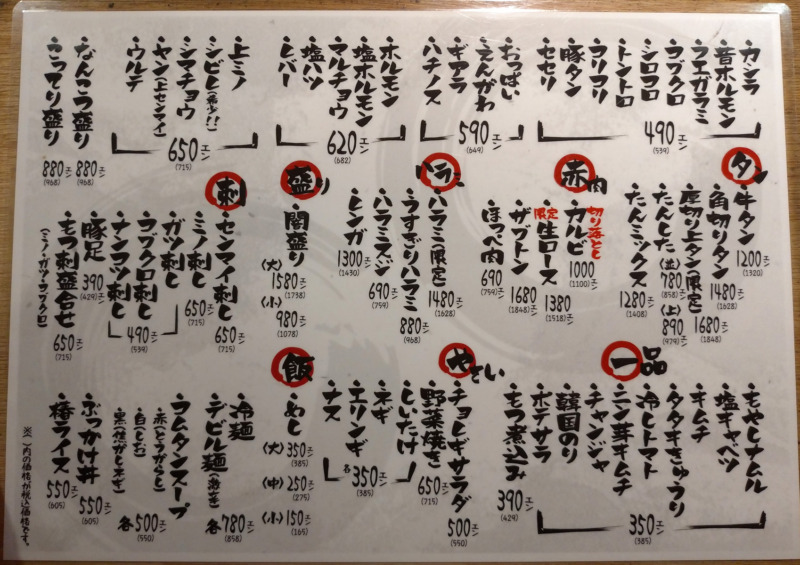 カシラ
昔ホルモン
フエガラミ
コブクロ
シロコロ
トントロ
コリコリ
豚タン
セセリ
490エン
(539)
おっぱい
えんがわ
ギアラ
ハチノス
590エン
(649)
ホルモン
塩ホルモン
マルチョウ
塩ハツ
レバー
620エン
(682)
上ミノ
シビレ(希少!!)
シマチョウ
ヤン(上センマイ)
ウルテ
650エン
(715)
なんこつ盛り
880エン
(968)
こってり盛り
880エン
(968)
タン
牛タン
1200エン
(1320)
角切りタン
1480エン
(1628)
厚切り上タン(限定)
1680エン
(1848)
たんした
(並)780エン
(858)
(上)890エン
(979)
たんミックス
1280エン
(1408)
赤肉
切り落とし
カルビ
1000エン
(1100)
限定
生ロース
1380エン
(1518)
ザブトン
1680エン
(1848)
ほっぺ肉
690エン
(759)
ハラミ
ハラミ(限定)
1480エン
(1628)
うすぎりハラミ
880エン
(968)
ハラミスジ
690エン
(759)
レンガ
1300エン
(1430)
盛り
闇盛り
(大)
1580エン
(1738)
(小)
980エン
(1078)
刺
センマイ刺し
650エン
(715)
ミノ刺し
650エン
(715)
ガツ刺し
コブクロ刺し
ナンコツ刺し
490エン
(539)
豚足
390エン
(429)
もつ刺盛合せ
(ミノ・ガツ・コブクロ)
650エン
(715)
一品
もやしナムル
塩キャベツ
キムチ
タタキきゅうり
冷しトマト
ニン芽キムチ
チャンジャ
韓国のり
ポテサラ
350エン
(385)
もつ煮込み
390エン
(429)
やさい
チョレギサラダ
500エン
(550)
野菜焼き
650エン
(715)
しいたけ
ネギ
エリンギ
ナス
各350エン
(385)
飯
めし
(大)350エン
(385)
(中)250エン
(275)
(小)150エン
(165)
冷麺
デビル麺(激辛)
各780エン
(858)
コムタンスープ
赤(とうがらし)
白(しお)
黒(焦がしネギ)
各500エン
(550)
ぶっかけ丼
550エン
(605)
椿ライス
550エン
(605)
※( )内の価格が税込価格です。